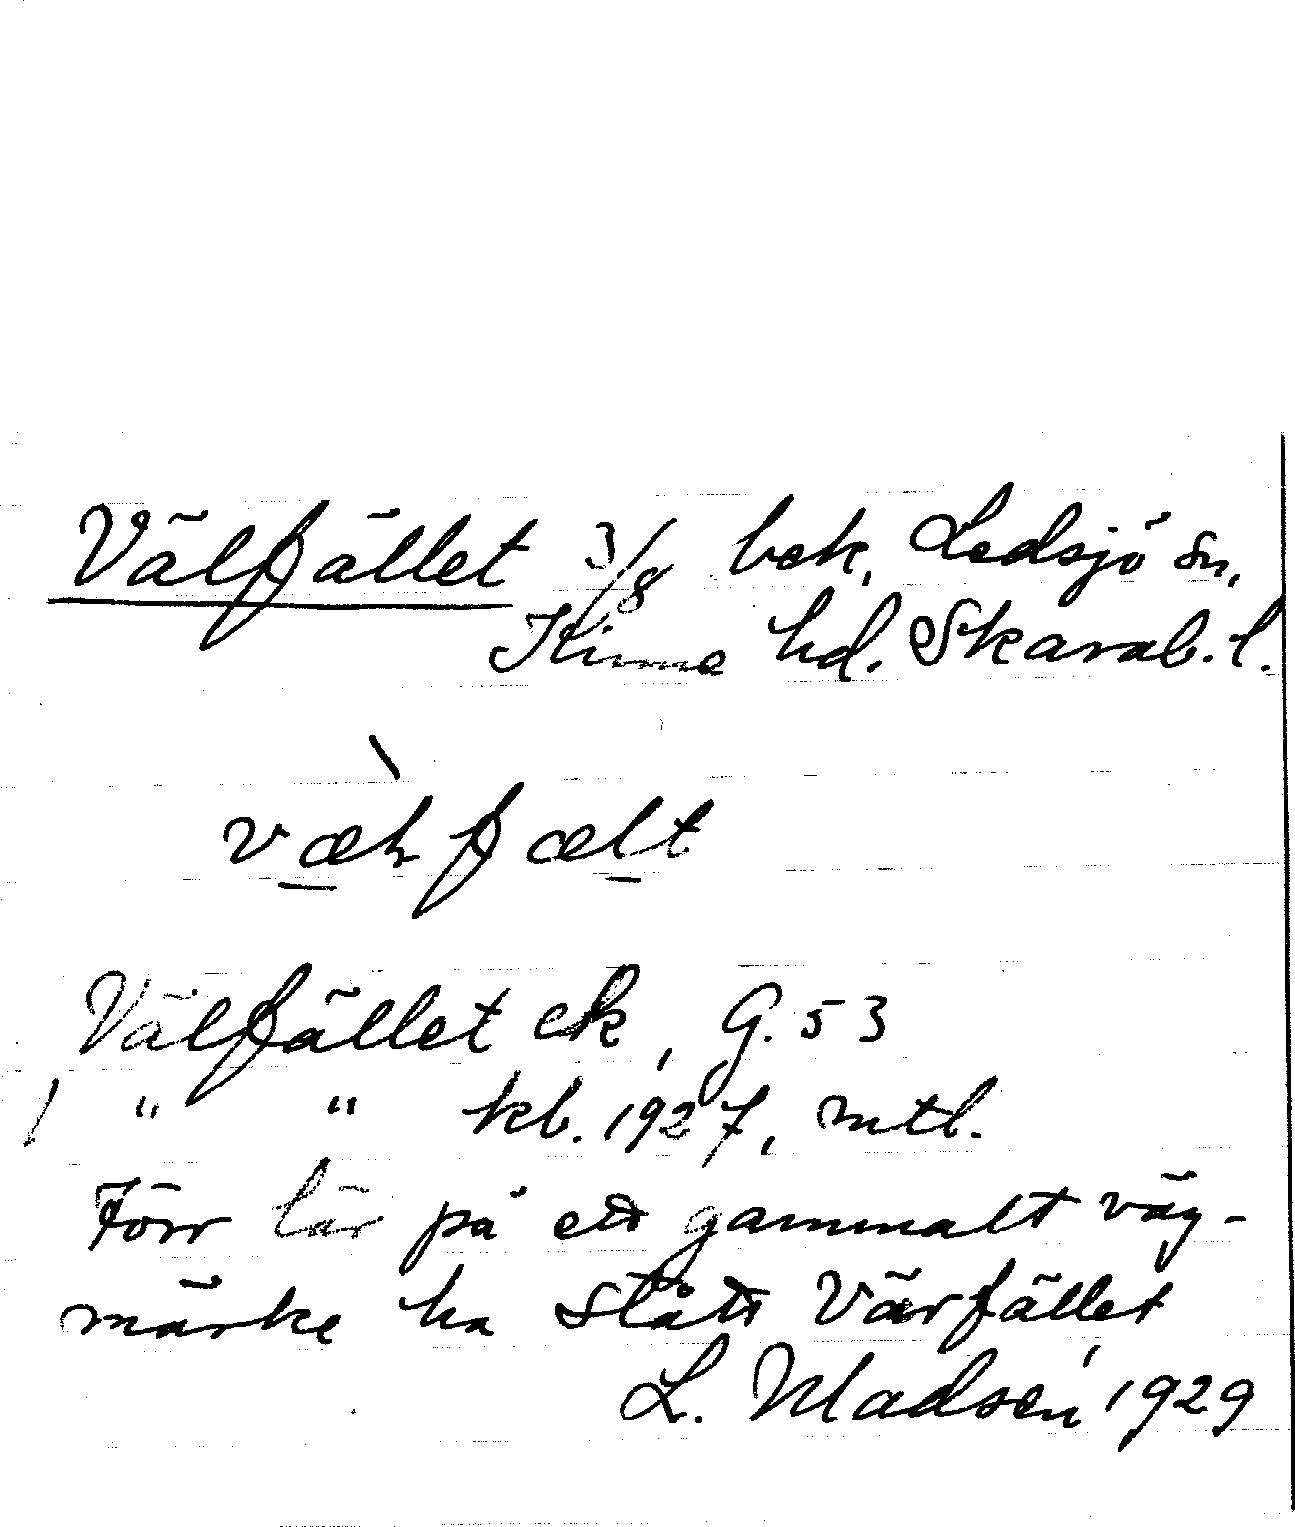 Välfället 3/8 bek, Ledsjö sn,
Kinne hd. Skarab. l.
Välfället ek, G. 53
" " kb. 1927, mtl.
Förr lär på ett gammalt väg-
märke ha stått Värfället,
L. Madsen 1929